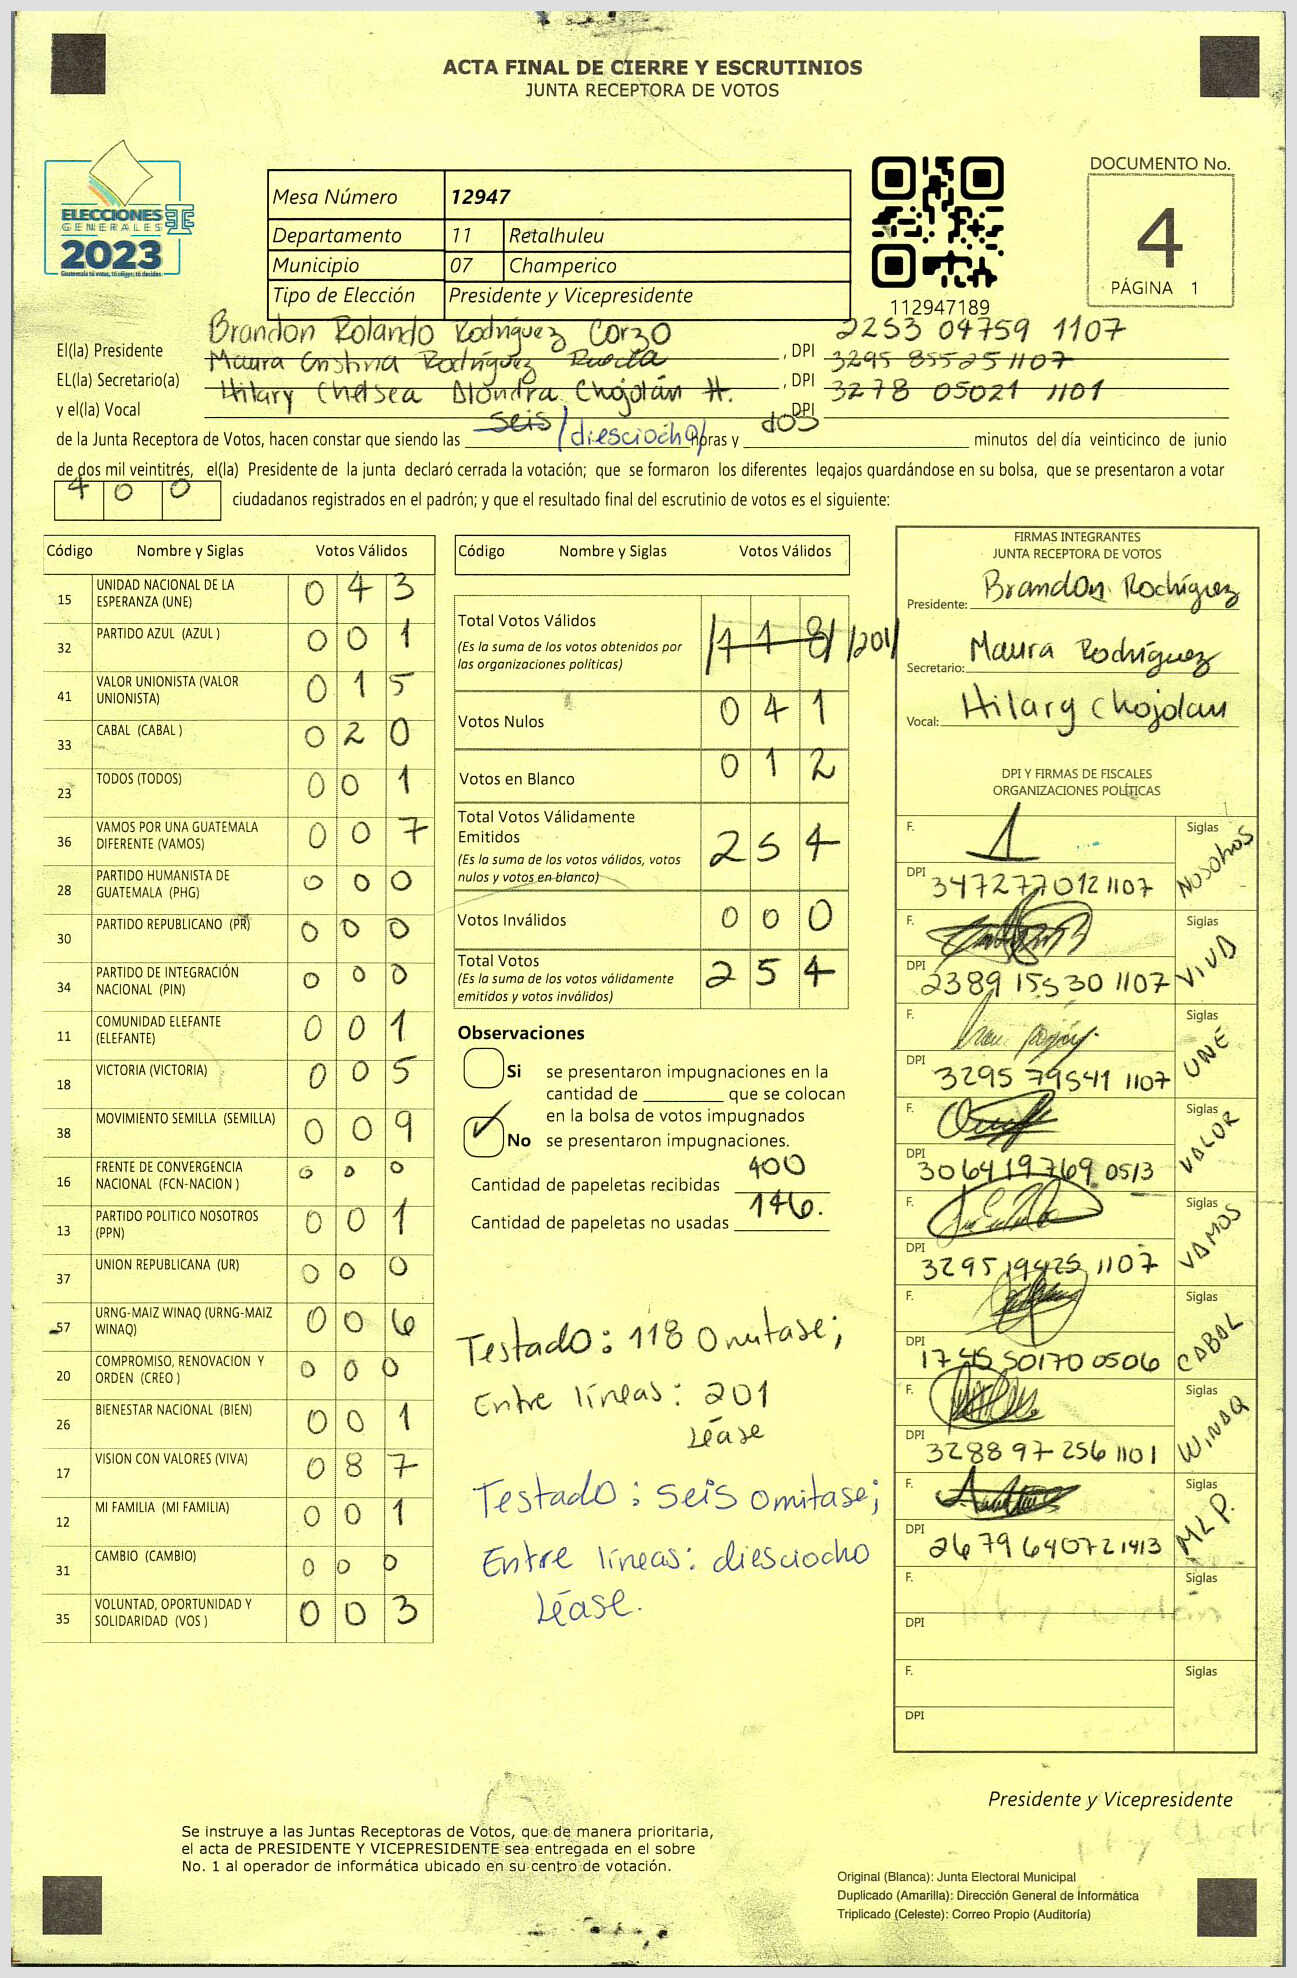 ACTA FINAL DE CIERRE Y ESCRUTINIOS
JUNTA RECEPTORA DE VOTOS
ELECCIONES
GENERALES
2023
Mesa Número 12947
Departamento 11 Retalhuleu
Municipio 07 Champerico
Tipo de Elección Presidente y Vicepresidente
112947189
DOCUMENTO No.
4
PÁGINA 1
El(la) Presidente Brandon Rolando Rodríguez Corzo, DPI 2253 04759 1107
EL(la) Secretario(a) Maura Cristina Rodríguez Rueda, DPI 3295 85525 1107
y el(la) Vocal Hilary Chelsea Alondra Chojolán H. DPI 3278 05021 1101
de la Junta Receptora de Votos, hacen constar que siendo las seis /diesciocho/ horas y dos minutos del día veinticinco de junio
de dos mil veintitrés, el(la) Presidente de la junta declaró cerrada la votación; que se formaron los diferentes legajos guardándose en su bolsa, que se presentaron a votar
400 ciudadanos registrados en el padrón; y que el resultado final del escrutinio de votos es el siguiente:
Código Nombre y Siglas Votos Válidos
15 UNIDAD NACIONAL DE LA ESPERANZA (UNE) 0 4 3
32 PARTIDO AZUL (AZUL ) 0 0 1
41 VALOR UNIONISTA (VALOR UNIONISTA) 0 1 5
33 CABAL (CABAL ) 0 2 0
23 TODOS (TODOS) 0 0 1
36 VAMOS POR UNA GUATEMALA DIFERENTE (VAMOS) 0 0 7
28 PARTIDO HUMANISTA DE GUATEMALA (PHG) 0 0 0
30 PARTIDO REPUBLICANO (PR) 0 0 0
34 PARTIDO DE INTEGRACIÓN NACIONAL (PIN) 0 0 0
11 COMUNIDAD ELEFANTE (ELEFANTE) 0 0 1
18 VICTORIA (VICTORIA) 0 0 5
38 MOVIMIENTO SEMILLA (SEMILLA) 0 0 9
16 FRENTE DE CONVERGENCIA NACIONAL (FCN-NACION ) 0 0 0
13 PARTIDO POLITICO NOSOTROS (PPN) 0 0 1
37 UNION REPUBLICANA (UR) 0 0 0
57 URNG-MAIZ WINAQ (URNG-MAIZ WINAQ) 0 0 6
20 COMPROMISO, RENOVACION Y ORDEN (CREO ) 0 0 0
26 BIENESTAR NACIONAL (BIEN) 0 0 1
17 VISION CON VALORES (VIVA) 0 8 7
12 MI FAMILIA (MI FAMILIA) 0 0 1
31 CAMBIO (CAMBIO) 0 0 0
35 VOLUNTAD, OPORTUNIDAD Y SOLIDARIDAD (VOS ) 0 0 3
Código Nombre y Siglas Votos Válidos
Total Votos Válidos /1 1 8/ /201/
(Es la suma de los votos obtenidos por
las organizaciones políticas)
Votos Nulos 0 4 1
Votos en Blanco 0 1 2
Total Votos Válidamente
Emitidos 2 5 4
(Es la suma de los votos válidos, votos
nulos y votos en blanco)
Votos Inválidos 0 0 0
Total Votos 2 5 4
(Es la suma de los votos válidamente
emitidos y votos inválidos)
Observaciones
Si se presentaron impugnaciones en la
cantidad de ________ que se colocan
en la bolsa de votos impugnados
No se presentaron impugnaciones.
Cantidad de papeletas recibidas 400
Cantidad de papeletas no usadas 146.
Testado: 118 Omitase;
Entre líneas: 201
Léase
Testado: seis omitase;
Entre líneas: diesciocho
Léase.
FIRMAS INTEGRANTES
JUNTA RECEPTORA DE VOTOS
Presidente: Brandon Rodríguez
Secretario: Maura Rodríguez
Vocal: Hilary Chojolan
DPI Y FIRMAS DE FISCALES
ORGANIZACIONES POLÍTICAS
F. Siglas NOSOTROS
DPI 347277012 1107
F. Siglas VIVA
DPI 2389 15530 1107
F. Siglas UNE
DPI 3295 79541 1107
F. Siglas VALOR
DPI 306419769 0513
F. Siglas VAMOS
DPI 3295 19425 1107
F. Siglas CABAL
DPI 1745 50170 0506
F. Siglas WINAQ
DPI 3288 97 256 1101
F. Siglas MLP.
DPI 2679 64072 1413
F. Siglas
DPI
F. Siglas
DPI
Presidente y Vicepresidente
Se instruye a las Juntas Receptoras de Votos, que de manera prioritaria,
el acta de PRESIDENTE Y VICEPRESIDENTE sea entregada en el sobre
No. 1 al operador de informática ubicado en su centro de votación.
Original (Blanca): Junta Electoral Municipal
Duplicado (Amarilla): Dirección General de Informática
Triplicado (Celeste): Correo Propio (Auditoría)